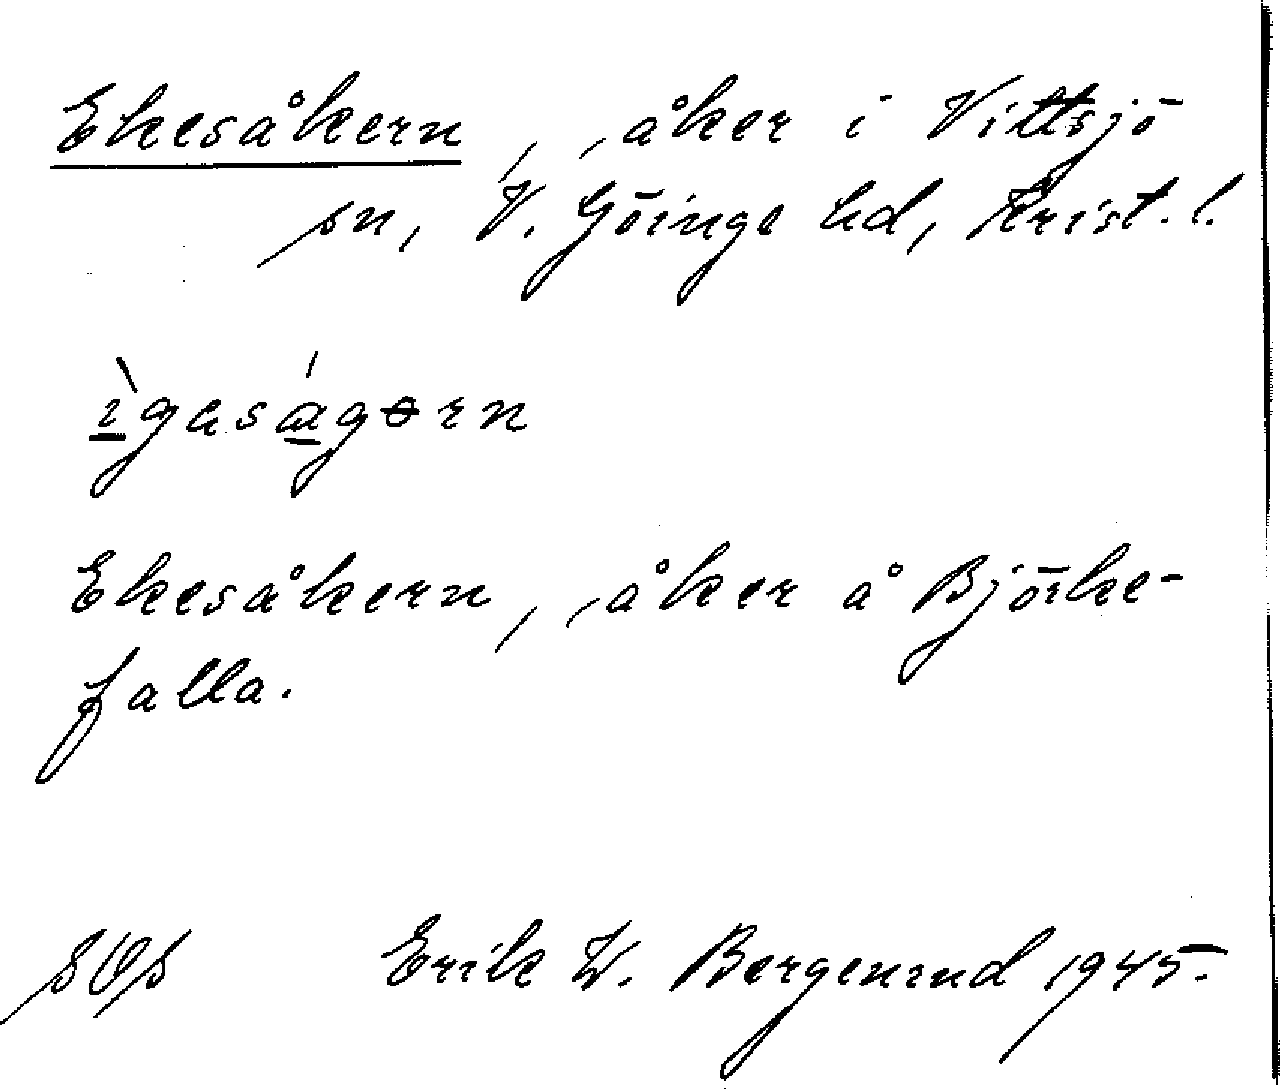 Ekesåkern, åker i Vittsjö
sn, V. Göinge hd, Krist. l.
Ekesåkern, åker å Björke-
falla.
Erik W. Bergenind 1945.